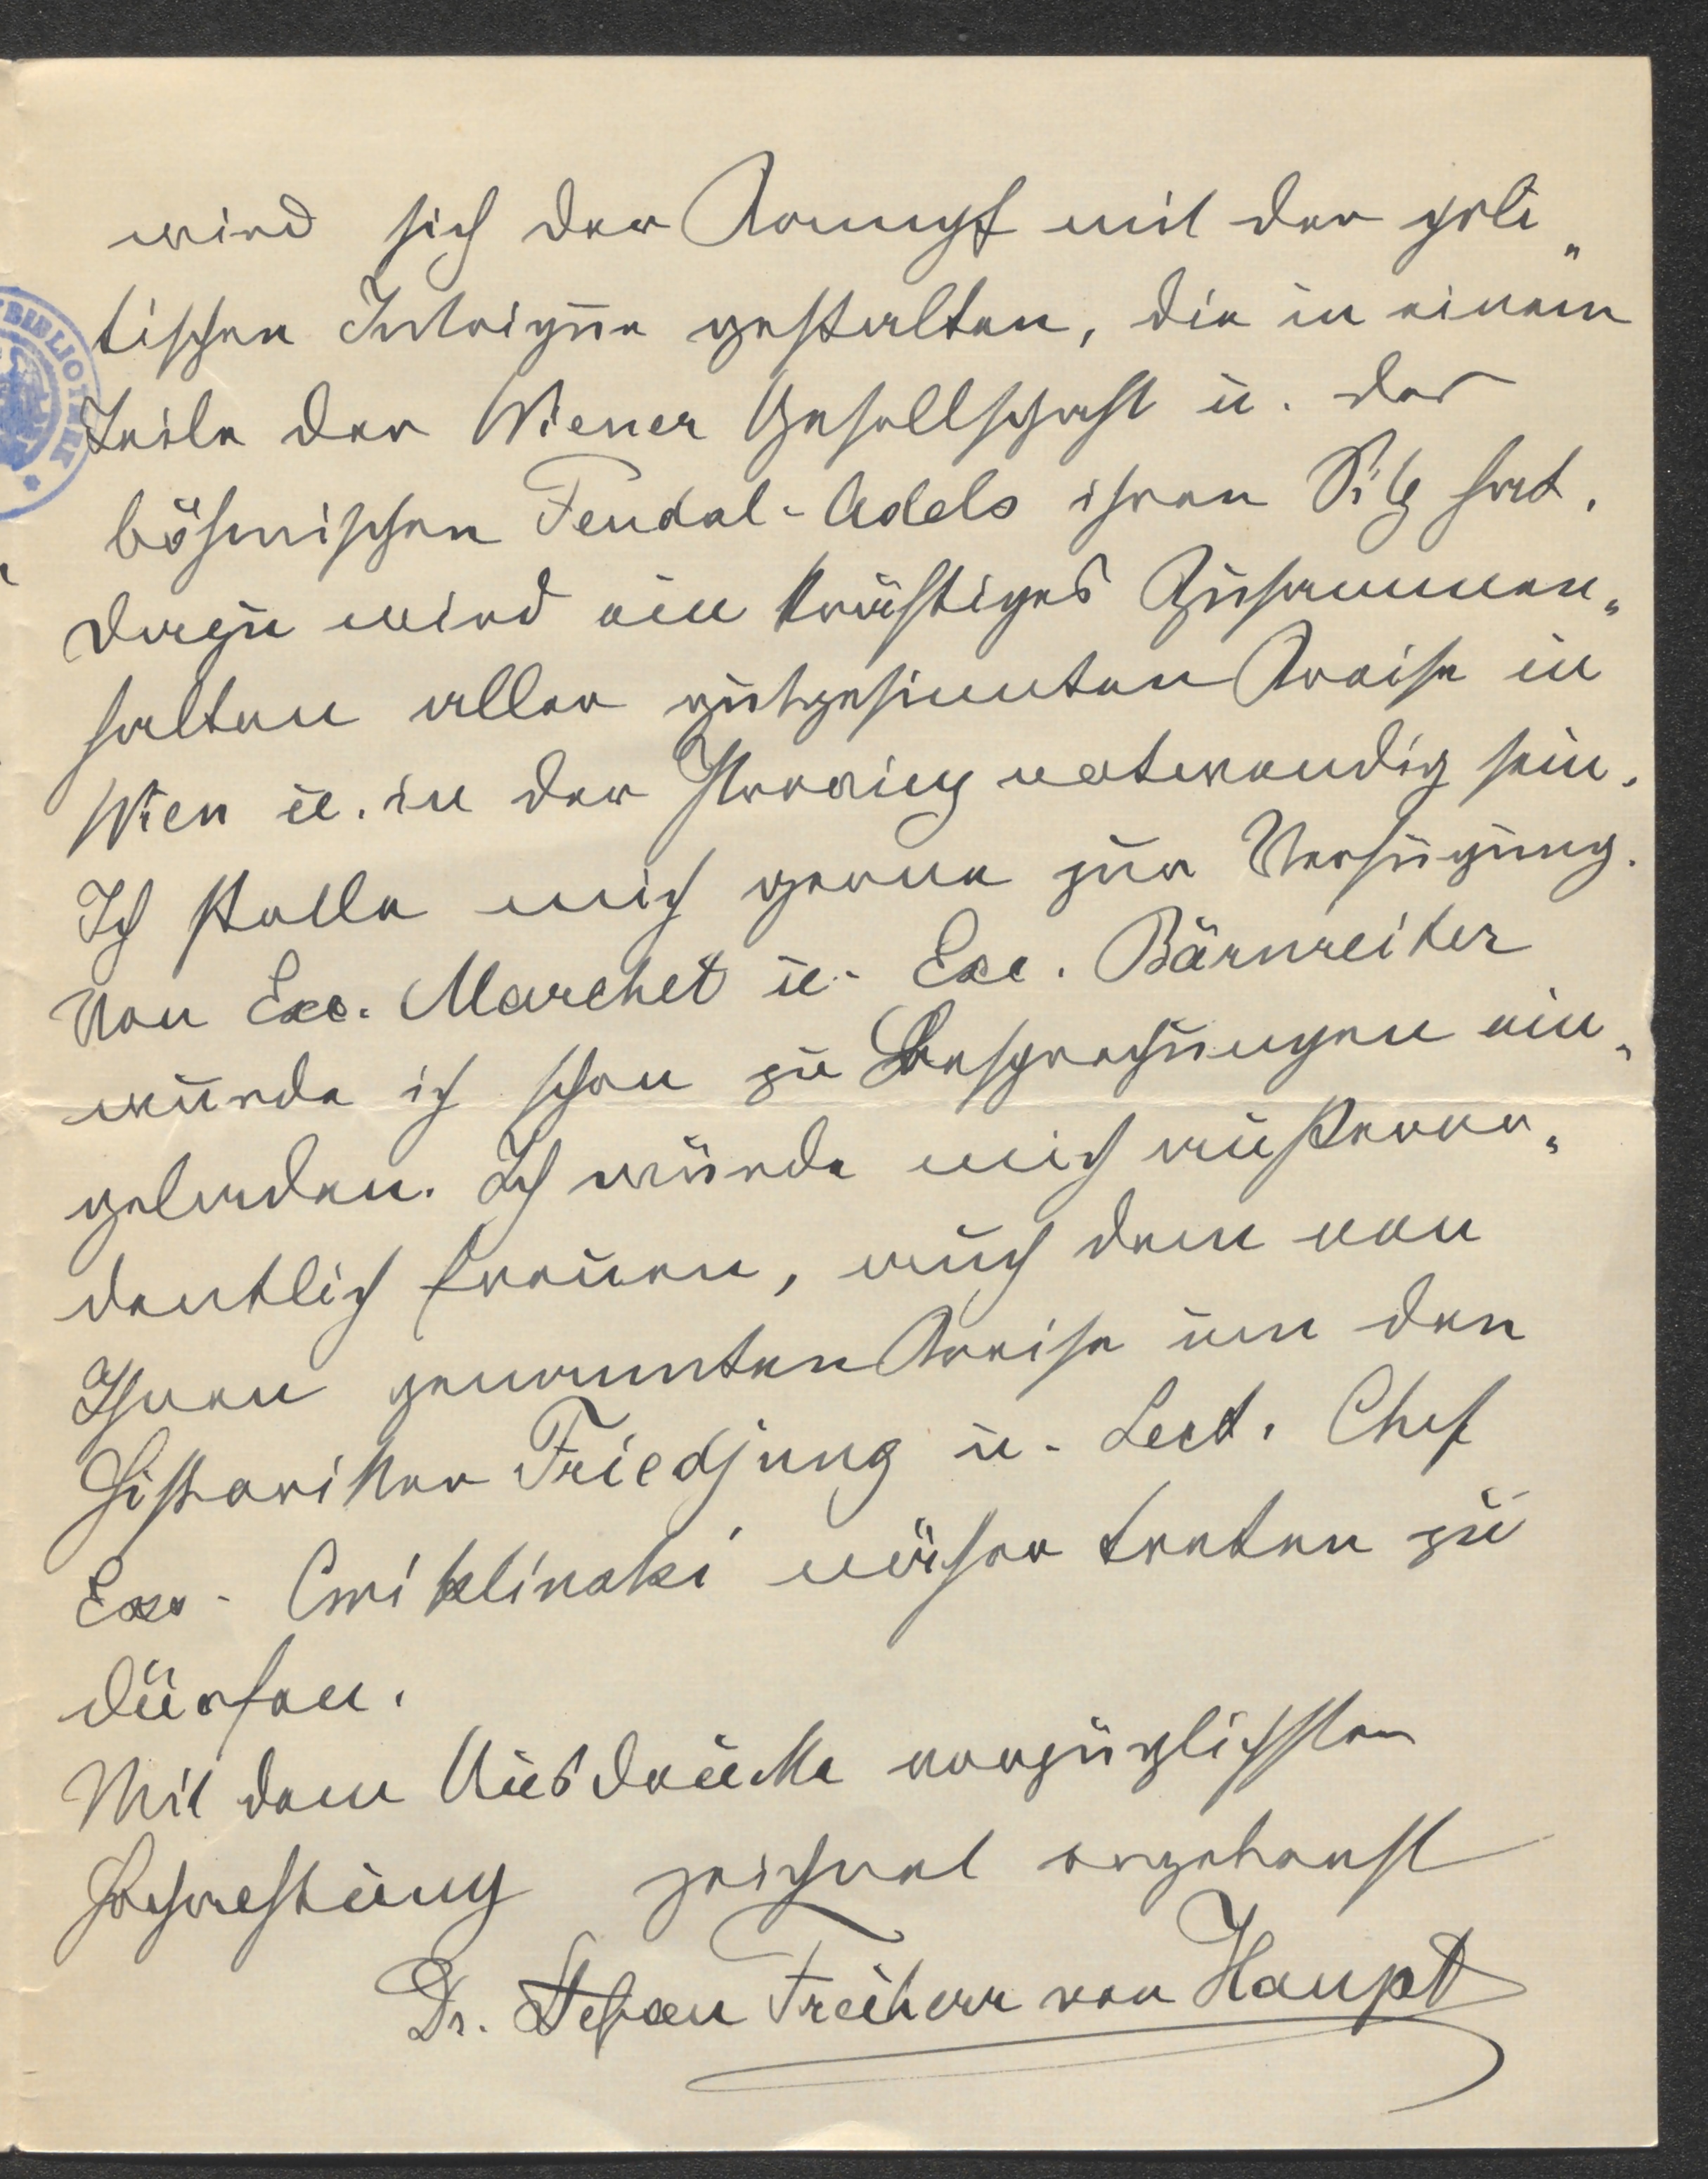 wird sich der Kampf mit der poli„
tischen Intrigue gestalten, die in einem
Teile der Wiener Gesellschaft u. des
böhmischen Feudal-Adels ihren Sitz hat.
Dazu wird ein kräftiges Zusammen„
halten aller gutgesinnten Kreise in
Wien u. in der Provinz notwendig sein.
Ich stelle mich gerne zur Verfügung.
Von Exc. Marchet u. Exc. Bärnreiter
wurde ich schon zu Besprechungen ein„
geladen. Ich würde mich außeror„
dentlich freuen, auch dem von
Ihnen genannten Kreise um den
Historiker Friedjung u. Sect. Chef
Exc. Cwiklinski näher treten zu
dürfen.
Mit dem Ausdrucke vorzüglichster
Hochachtung zeichnet ergebenst
Dr. Stefan Freiherr von Haupt
BIBLIOTHEK